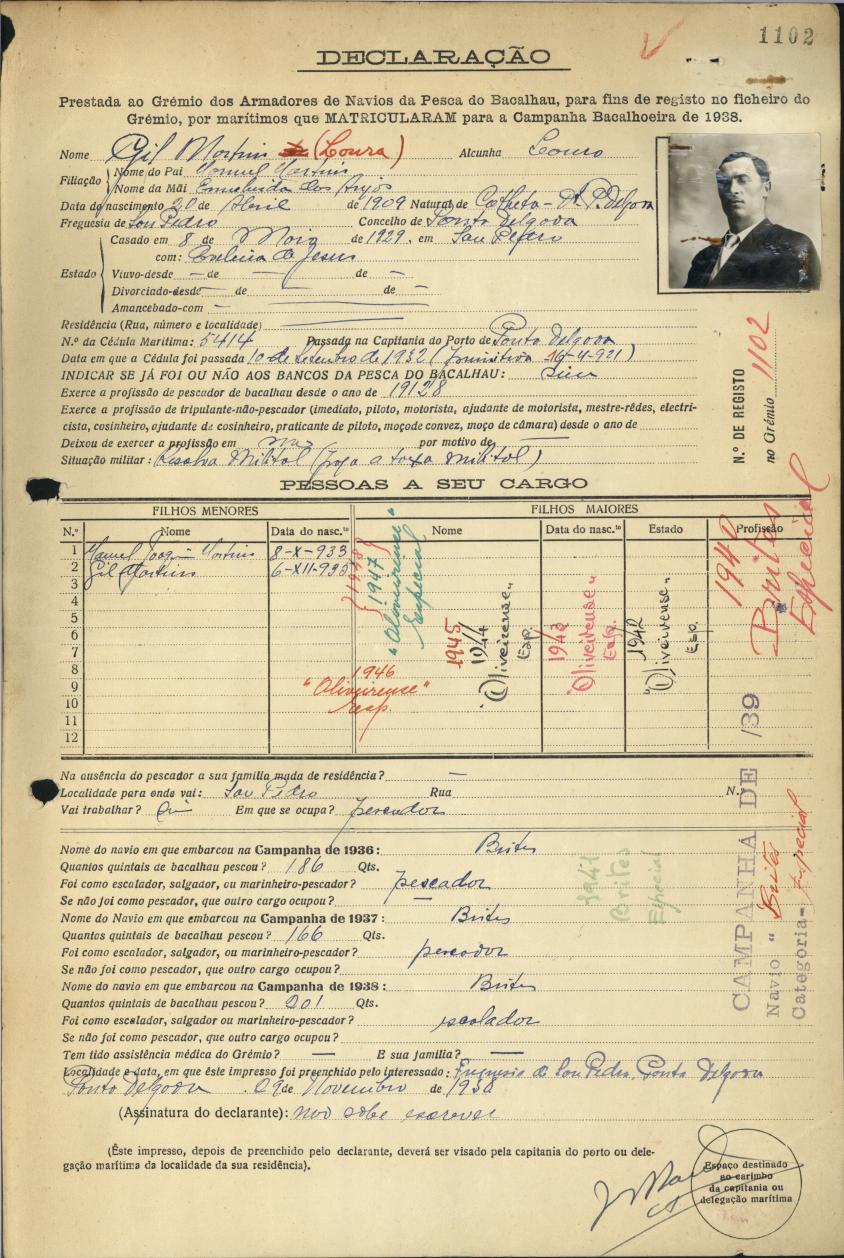 1102
DECLARAÇÃO
Prestada ao Grémio dos Armadores de Navios da Pesca do Bacalhau, para fins de registo no ficheiro do
Grémio, por marítimos que MATRICULARAM para a Campanha Bacalhoeira de 1938.
Nome Gil Martins (Loura) Alcunha Louro
Filiação Nome do Pai Manuel Martins
Nome da Mãi dos Anjos
Data do nascimento 20 de Abril de 1909 Natural de P. Delgada
Freguesia de San Pedro Concelho de Ponta Delgada
Casado em 8 de Maio de 1929, em San Pedro
com: de Jesus
Estado Viuvo-desde — de — de —
Divorciado-desde — de — de —
Amancebado-com —
Residência (Rua, número e localidade) —
N.º da Cédula Marítima: 5414 Passada na Capitania do Porto de Ponta Delgada
Data em que a Cédula foi passada 10 de Setembro de 1932 (Primitiva -4-921)
INDICAR SE JÁ FOI OU NÃO AOS BANCOS DA PESCA DO BACALHAU: Sim
Exerce a profissão de pescador de bacalhau desde o ano de 19128
Exerce a profissão de tripulante-não-pescador (imediato, piloto, motorista, ajudante de motorista, mestre-rêdes, electri-
cista, cosinheiro, ajudante de cosinheiro, praticante de piloto, moço de convez, moço de câmara) desde o ano de
Deixou de exercer a profissão em por motivo de —
Situação militar: Resalva Militar (paga a taxa militar)
N.º DE REGISTO
no Grémio 1102
PESSOAS A SEU CARGO
FILHOS MENORES FILHOS MAIORES
N.º Nome Data do nasc.to Nome Data do nasc.to Estado Profissão
1 Manuel Martins 8-X-933
2 Gil Martins 6-XII-935
3
4
5
6
7
8
9
10
11
12
1948
1947
"Oliveirense"
Especial
1946
"Oliveirense"
Esp.
1945
1944
"Oliveirense"
Esp.
1943
"Oliveirense"
Esp.
1942
"Oliveirense"
Esp.
1940
Brites
Especial
Na ausência do pescador a sua família muda de residência? —
Localidade para onde vai: San Pedro Rua N.º
Vai trabalhar? Em que se ocupa? pescador
Nome do navio em que embarcou na Campanha de 1936: Brites
Quantos quintais de bacalhau pescou? 186 Qts.
Foi como escalador, salgador, ou marinheiro-pescador? pescador
Se não foi como pescador, que outro cargo ocupou? —
Nome do Navio em que embarcou na Campanha de 1937: Brites
Quantos quintais de bacalhau pescou? 166 Qts.
Foi como escalador, salgador, ou marinheiro-pescador? pescador
Se não foi como pescador, que outro cargo ocupou?
Nome do navio em que embarcou na Campanha de 1938 Brites
Quantos quintais de bacalhau pescou? 201 Qts.
Foi como escalador, salgador ou marinheiro-pescador? escalador
Se não foi como pescador, que outro cargo ocupou?
1941
Brites
Especial
CAMPANHA DE /39
Navio "Brites
Categoria- Especial
Tem tido assistência médica do Grémio? — E sua família? —
Localidade e data, em que êste impresso foi preenchido pelo interessado: Freguesia de San Pedro Ponta Delgada
Ponta Delgada, 29 de Novembro de 1938
(Assinatura do declarante): não sabe escrever
(Êste impresso, depois de preenchido pelo declarante, deverá ser visado pela capitania do porto ou dele-
gação marítima da localidade da sua residência).
Espaço destinado
ao carimbo
da capitania ou
delegação marítima